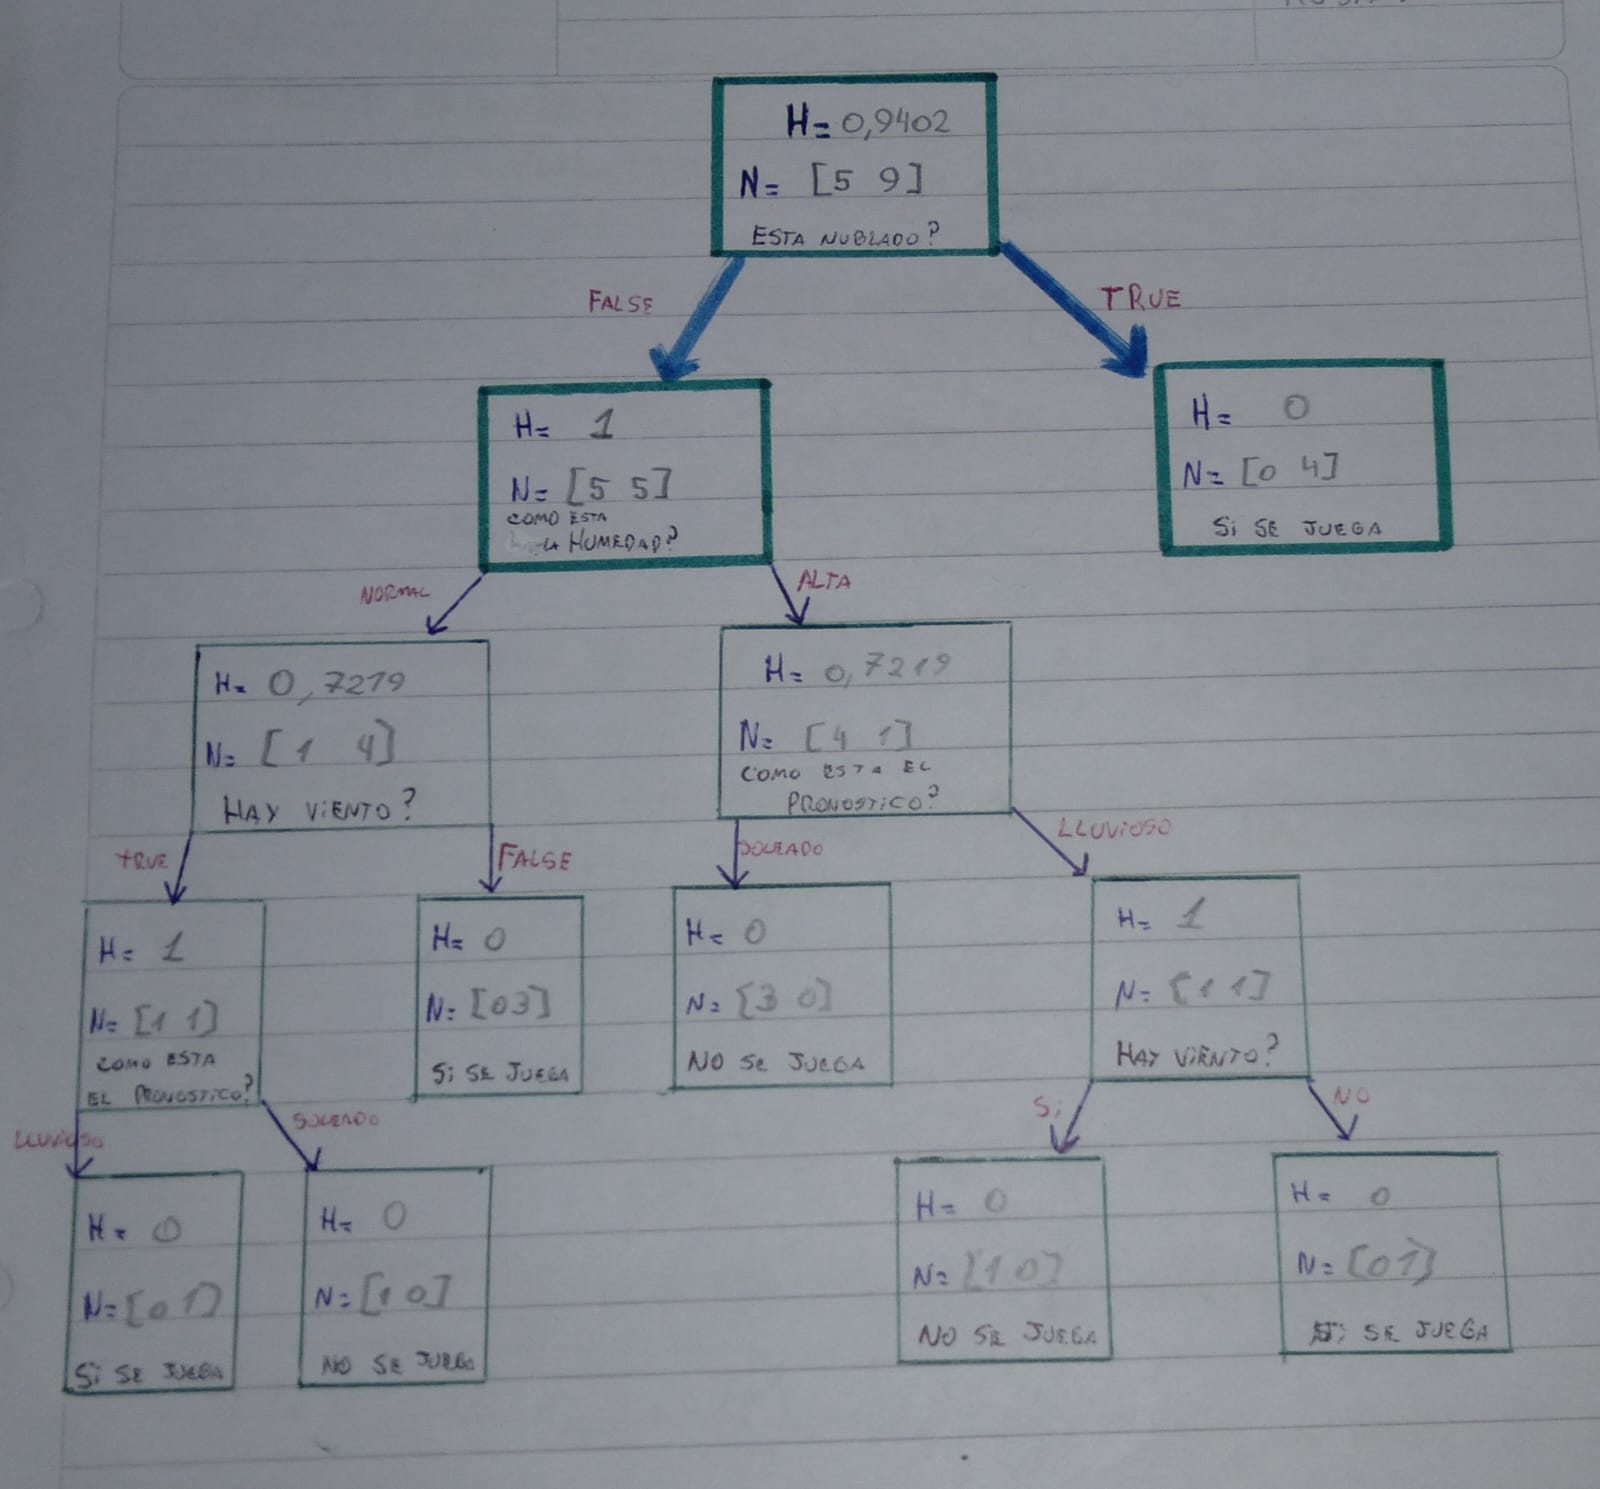 H= 0,9402
N= [5 9]
ESTA NUBLADO?
FALSE
TRUE
H= 1
N= [5 5]
COMO ESTA
LA HUMEDAD?
H= 0
N= [0 4]
Si SE JUEGA
NORMAL
ALTA
H= 0,7219
N= [1 4]
HAY ViENTO?
H= 0,7219
N= [4 1]
COMO ESTA EL
PRONOSTiCO?
TRUE
FALSE
SOLEADO
LLUViOSO
H= 1
N= [1 1]
COMO ESTA
EL PRONOSTiCO?
H= 0
N= [0 3]
Si SE JUEGA
H= 0
N= [3 0]
NO SE JUEGA
H= 1
N= [1 1]
HAY ViENTO?
LLUViOSO
SOLEADO
Si
NO
H= 0
N= [0 1]
Si SE JUEGA
H= 0
N= [1 0]
NO SE JUEGA
H= 0
N= [1 0]
NO SE JUEGA
H= 0
N= [0 1]
Si SE JUEGA